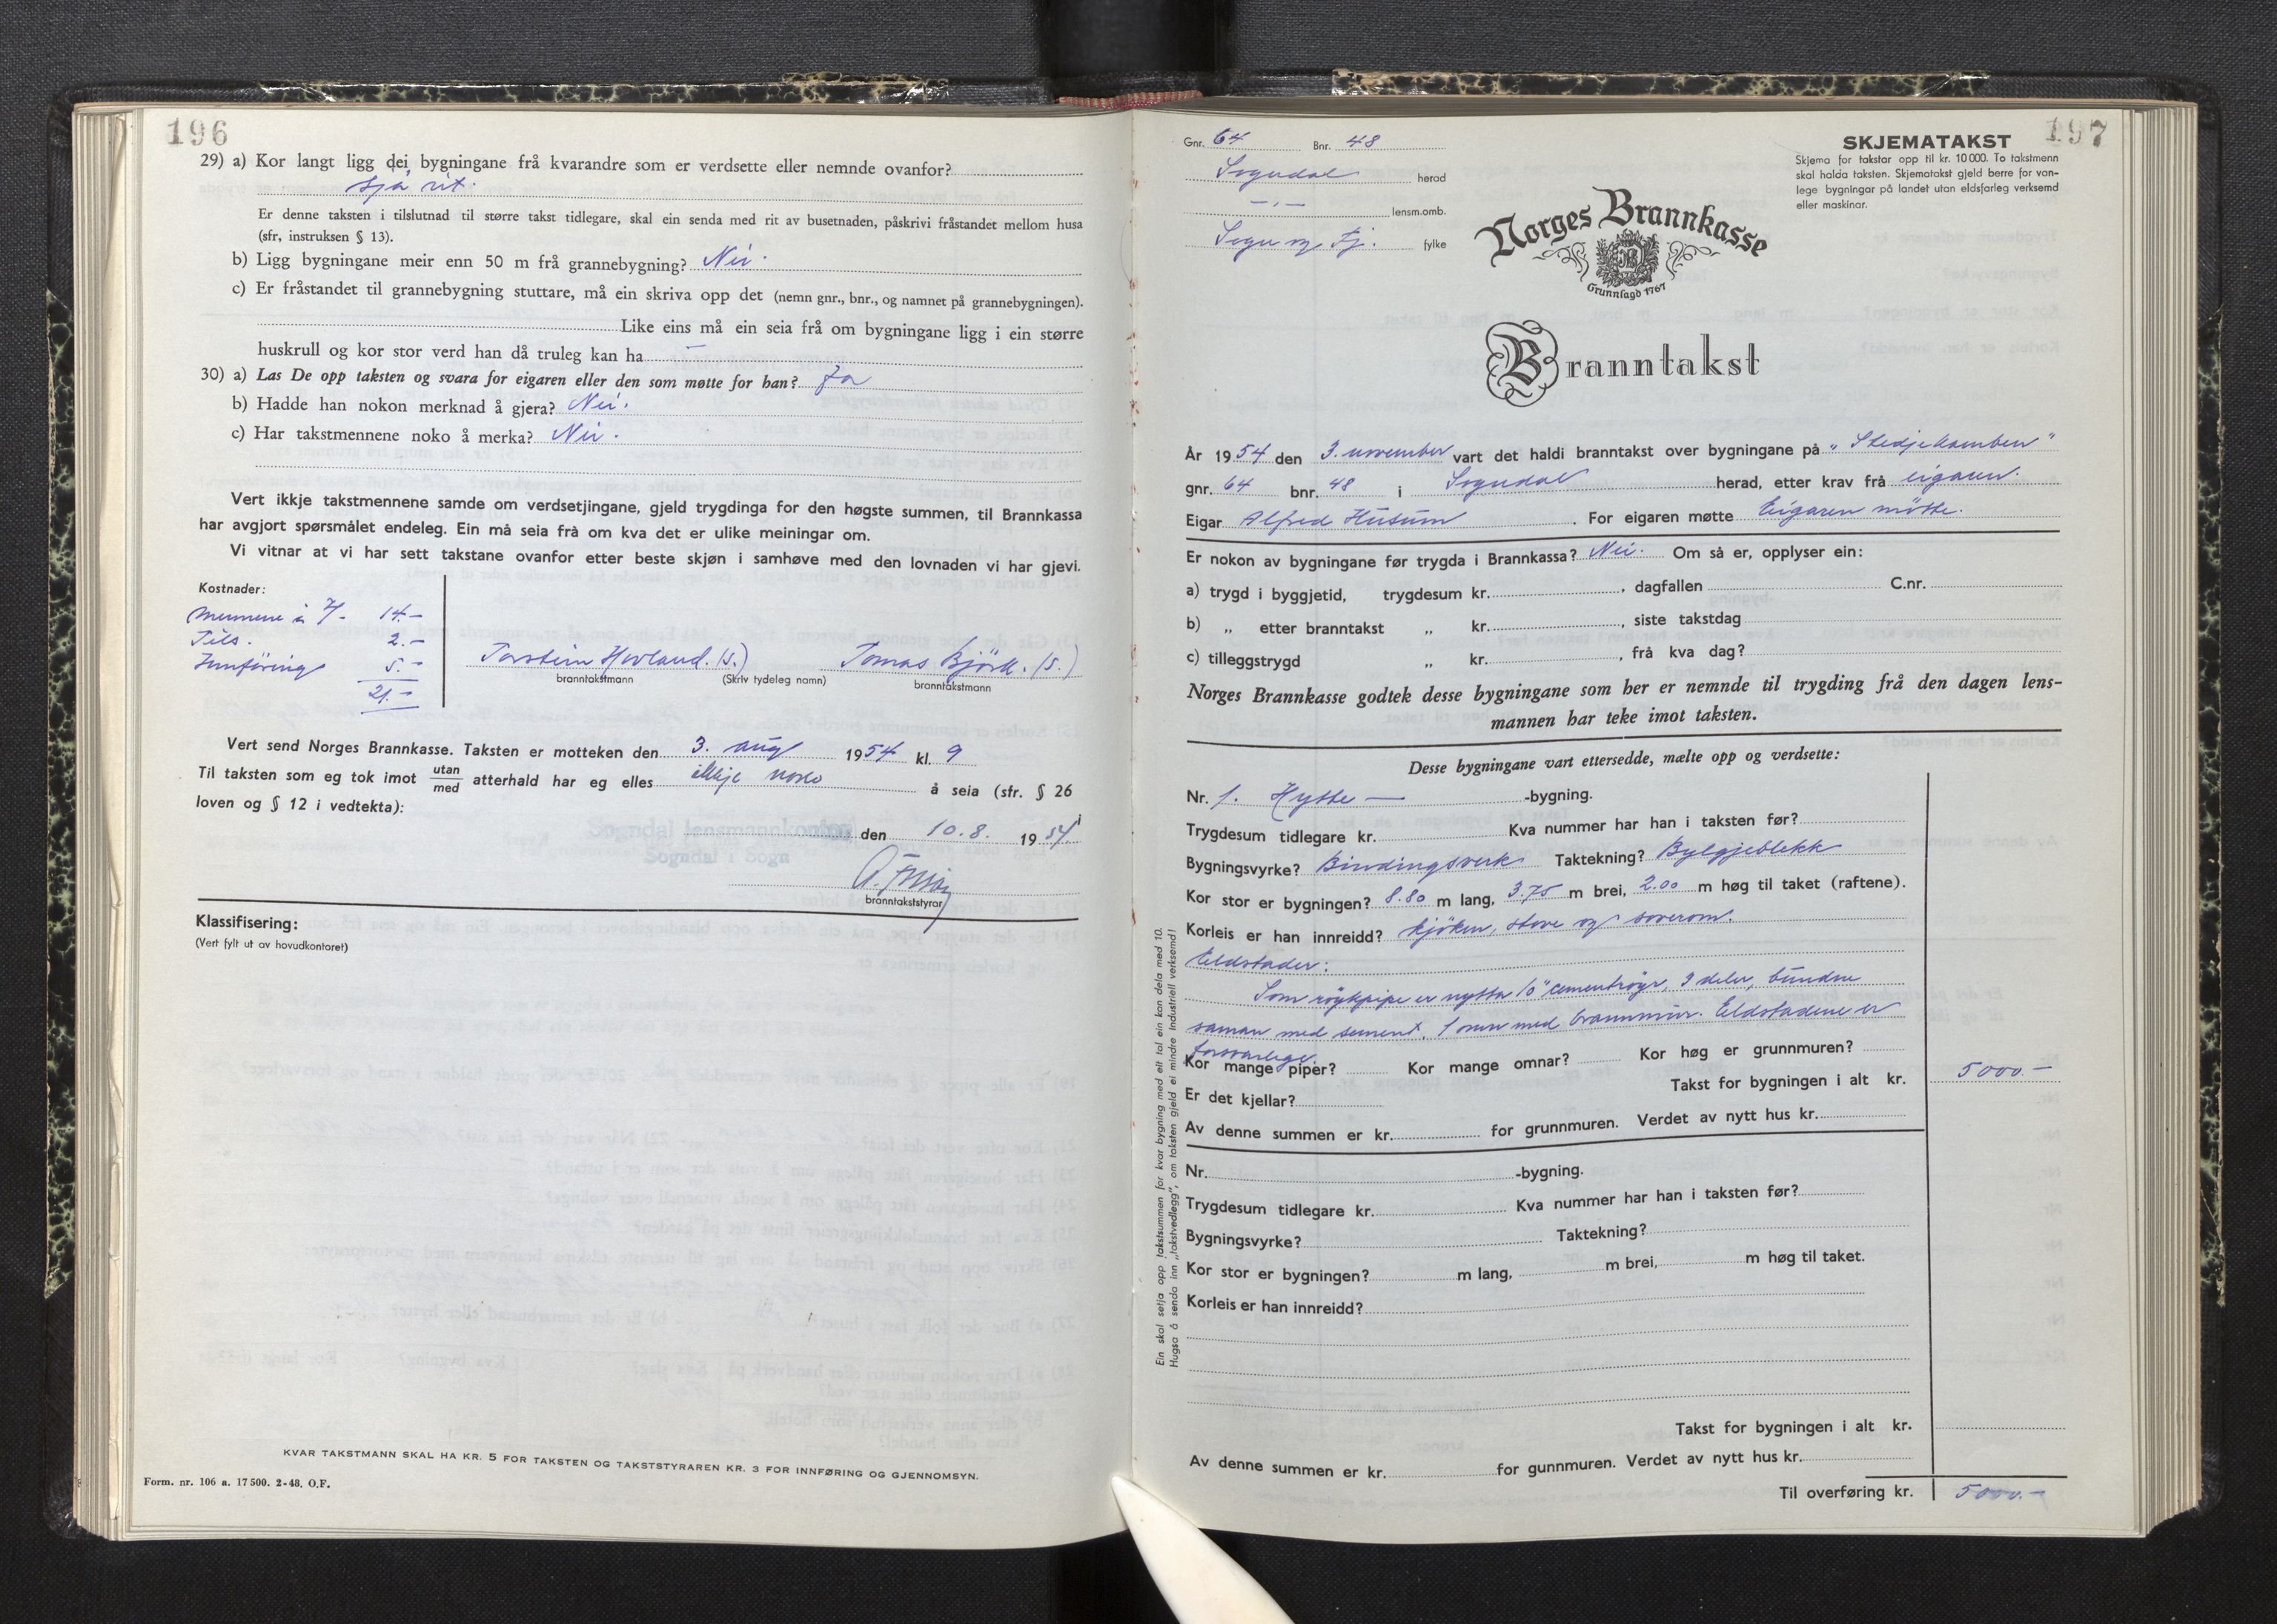 196
29) a) Kor langt ligg dei bygningane frå kvarandre som er verdsette eller nemnde ovanfor?
sjå rit.
Er denne taksten i tilslutnad til større takst tidlegare, skal ein senda med rit av busetnaden, påskrivi fråstandet mellom husa
(sfr, instruksen § 13).
b) Ligg bygningane meir enn 50 m frå grannebygning? Nei.
c) Er fråstandet til grannebygning stuttare, må ein skriva opp det (nemn gnr., bnr., og namnet på grannebygningen).
Like eins må ein seia frå om bygningane ligg i ein større
huskrull og kor stor verd han då truleg kan ha —
30) a) Las De opp taksten og svara for eigaren eller den som møtte for han? Ja
b) Hadde han nokon merknad å gjera? Nei.
c) Har takstmennene noko å merka? Nei.
Vert ikkje takstmennene samde om verdsetjingane, gjeld trygdinga for den høgste summen, til Brannkassa
har avgjort spørsmålet endeleg. Ein må seia frå om kva det er ulike meiningar om.
Vi vitnar at vi har sett takstane ovanfor etter beste skjøn i samhøve med den lovnaden vi har gjevi.
Kostnader:
Mennene à 7.- 14.-
Tils. 2.-
Innföring 5.-
21.-
Torstein Hovland. (s.) Tomas Björk. (s.)
branntakstmann (Skriv tydeleg namn) branntakstmann
Vert send Norges Brannkasse. Taksten er motteken den 3. aug 1954 kl. 9
Til taksten som eg tok imot utan/med atterhald har eg elles ikkje noko å seia (sfr. § 26
loven og § 12 i vedtekta):
Sogndal lensmannkontor den 10.8. 1954
Sogndal i Sogn
branntakststyrar
Klassifisering:
(Vert fylt ut av hovudkontoret)
KVAR TAKSTMANN SKAL HA KR. 5 FOR TAKSTEN OG TAKSTSTYRAREN KR. 3 FOR INNFØRING OG GJENNOMSYN.
Form. nr. 106 a. 17 500. 2-48. O.F.
197
Gnr. 64 Bnr. 48
Sogndal herad
— " — lensm.omb.
Sogn og Fj. fylke
SKJEMATAKST
Skjema for takstar opp til kr. 10 000. To takstmenn
skal halda taksten. Skjematakst gjeld berre for van-
lege bygningar på landet utan eldsfarleg verksemd
eller maskinar.
Norges Brannkasse
Grunnlagd 1767
Branntakst
År 1954 den 3. november vart det haldi branntakst over bygningane på "Stedjekamben"
gnr. 64 bnr. 48 i Sogndal herad, etter krav frå eigaren.
Eigar Alfred Husum. For eigaren møtte Eigaren mötte.
Er nokon av bygningane før trygda i Brannkassa? Nei. Om så er, opplyser ein:
a) trygd i byggjetid, trygdesum kr. , dagfallen C.nr.
b) „ etter branntakst „ kr. , siste takstdag
c) tilleggstrygd „ kr. , frå kva dag?
Norges Brannkasse godtek desse bygningane som her er nemnde til trygding frå den dagen lens-
mannen har teke imot taksten.
Desse bygningane vart ettersedde, mælte opp og verdsette:
Nr. 1. Hytte — -bygning.
Trygdesum tidlegare kr. Kva nummer har han i taksten før?
Bygningsvyrke? Bindingsverk Taktekning? Bylgjeblekk
Kor stor er bygningen? 8.80 m lang, 3.75 m brei, 2.00 m høg til taket (raftene).
Korleis er han innreidd? kjöken, stove og soverom.
Eldstader:
Som röykpipe er nytta 10" cementröyr, 3 deler, bundne
saman med sement. 1 omn med brannmur. Eldstadene er
forsvarlege.
Kor mange piper? Kor mange omnar? Kor høg er grunnmuren?
Er det kjellar? Takst for bygningen i alt kr. 5000.-
Av denne summen er kr. for grunnmuren. Verdet av nytt hus kr.
Nr. -bygning.
Trygdesum tidlegare kr. Kva nummer har han i taksten før?
Bygningsvyrke? Taktekning?
Kor stor er bygningen? m lang, m brei, m høg til taket.
Korleis er han innreidd?
Takst for bygningen i alt kr.
Av denne summen er kr. for gunnmuren. Verdet av nytt hus kr.
Til overføring kr. 5000.-
Ein skal setja opp takstsummen for kvar bygning med eit tal ein kan dela med 10.
Hugsa å senda inn „takstvedlegg", om taksten gjeld ei mindre industriell verksemd!